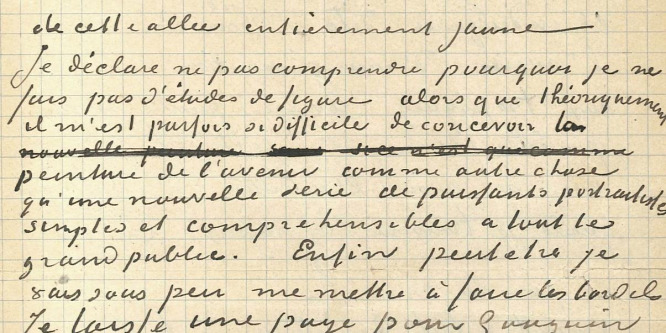 de cette allée entièrement jaune
Je déclare ne pas comprendre pourquoi je ne
fais pas d'études de figure alors que théoriquement
il m'est parfois si difficile de concevoir la
nouvelle peinture sans si ce n'est que comme
peinture de l'avenir comme autre chose
qu'une nouvelle série de puissants portraitistes
simples et comprehensibles a tout le
grand public. Enfin peutetre je
vais sous peu me mettre à faire les bordels
Je laisse une page pour Gauguin